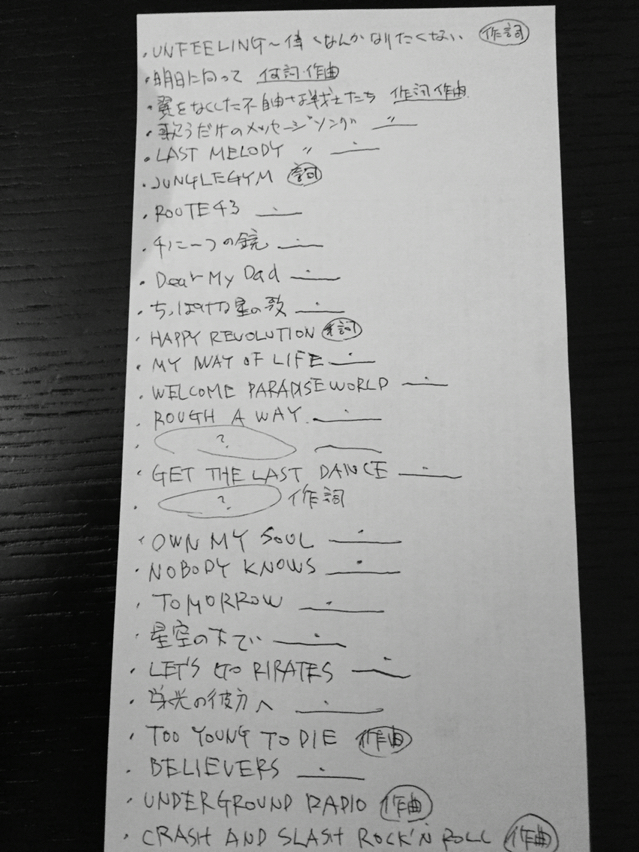 ・UNFEELING～偉くなんかなりたくない 作詞
・明日に向って 作詞 作曲
・翼をなくした不自由な戦士たち 作詞 作曲
・歌うだけのメッセージソング 〃
・LAST MELODY 〃
・JUNGLEGYM 詞
・ROUTE43
・千に一つの鏡
・Dear My Dad
・ちっぽけな星の歌
・HAPPY REVOLUTION 詞
・MY WAY OF LIFE
・WELCOME PARADISE WORLD
・ROUGH A WAY
・?
・GET THE LAST DANCE
・? 作詞
・OWN MY SOUL
・NOBODY KNOWS
・TOMORROW
・星空の下で
・LET'S GO PIRATES
・栄光の彼方へ
・TOO YOUNG TO DIE 作曲
・BELIEVERS
・UNDERGROUND RADIO 作曲
・CRASH AND SLASH ROCK'N ROLL 作曲